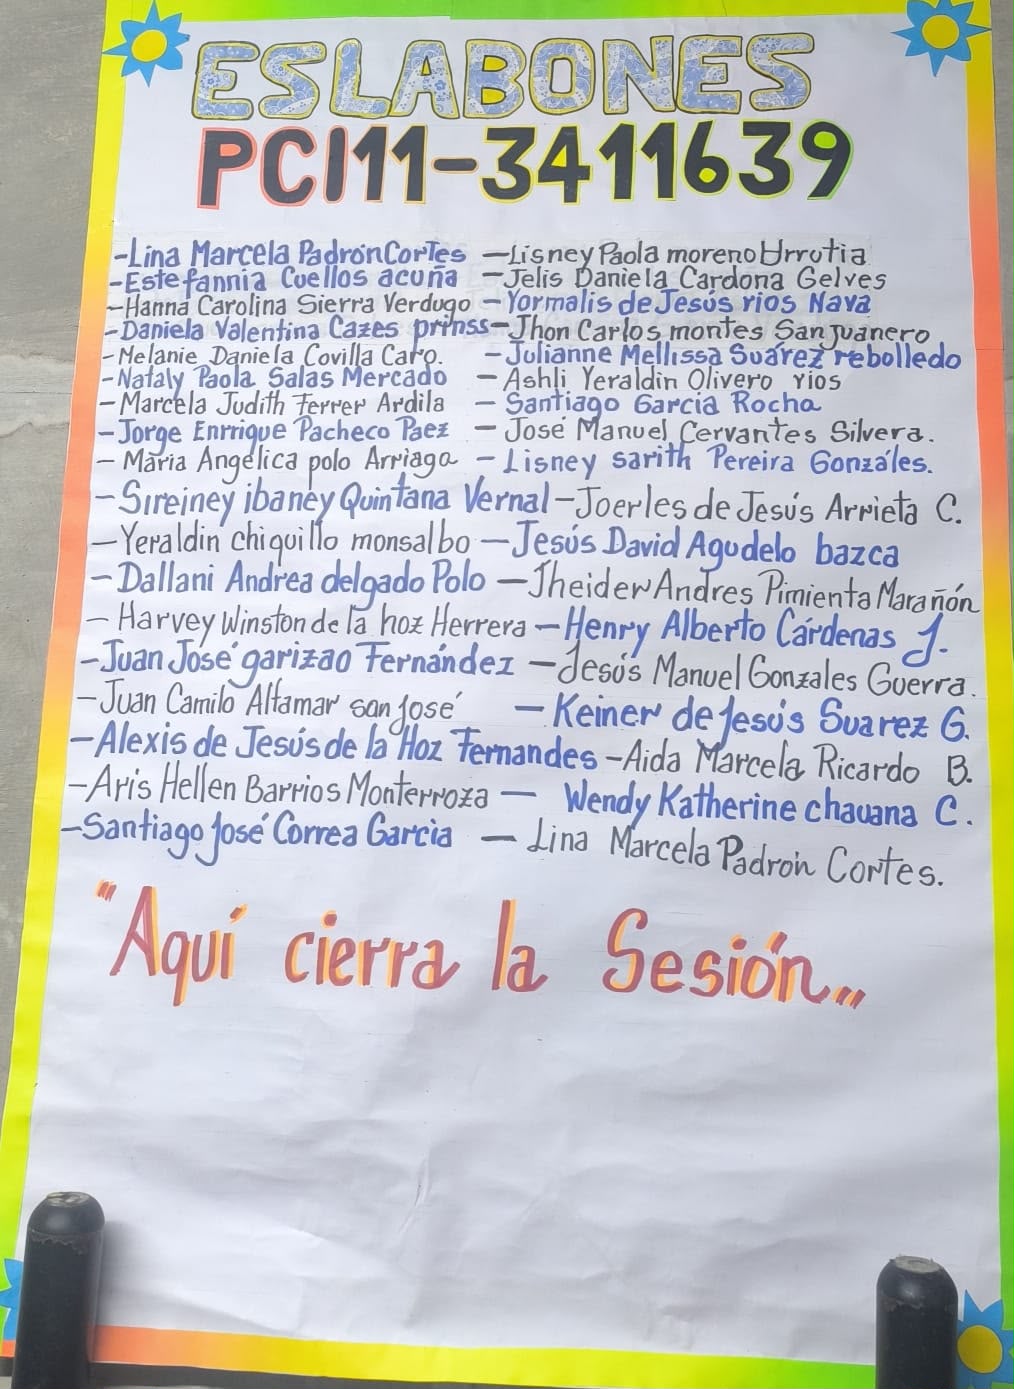 ESLABONES
PC111-3411639
-Lina Marcela Padrón Cortes -Lisney Paola moreno Urrutia
-Estefannia Cuellos acuña -Jelis Daniela Cardona Gelves
-Hanna Carolina Sierra Verdugo -Yormalis de Jesús rios Nava
-Daniela Valentina Cazes prinss -Jhon Carlos montes Sanjuanero
-Melanie Daniela Covilla Caro. -Julianne Mellissa Suárez rebolledo
-Nataly Paola Salas Mercado -Ashli Yeraldin Olivero rios
-Marcela Judith Ferrer Ardila -Santiago Garcia Rocha
-Jorge Enrrique Pacheco Paez -José Manuel Cervantes Silvera.
-Maria Angélica polo Arriaga -Lisney sarith Pereira Gonzáles.
-Sireiney ibaney Quintana Vernal -Joerles de Jesús Arrieta C.
-Yeraldin chiquillo monsalbo -Jesús David Agudelo bazca
-Dallani Andrea delgado Polo -Jheider Andres Pimienta Marañón
-Harvey Winston de la hoz Herrera -Henry Alberto Cárdenas J.
-Juan José garizao Fernández -Jesús Manuel Gonzales Guerra.
-Juan Camilo Altamar san josé -Keiner de jesús Suarez G.
-Alexis de Jesús de la Hoz Fernandes -Aida Marcela Ricardo B.
-Aris Hellen Barrios Monterroza - Wendy Katherine chavana C.
-Santiago José Correa Garcia - Lina Marcela Padrón Cortes.
"Aquí cierra la Sesión..."